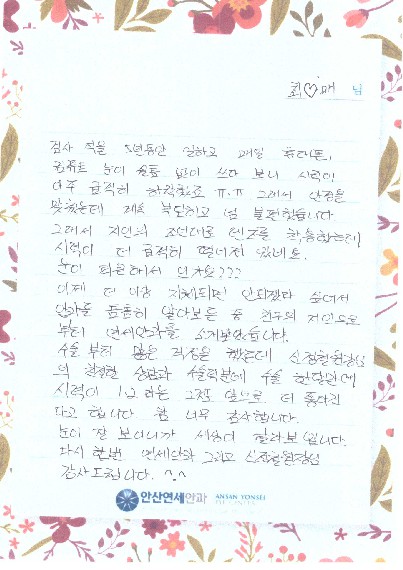 최♡매 님
검사 직을 5년동안 일하고 매일 휴대폰,
컴퓨트 눈이 쉴틈 없이 쓰다 보니 시력이
아주 급격히 하락했죠 ㅠ.ㅠ 그래서 안경을
맞췄는데 계속 불편하고 넘 불편했습니다
그래서 지인의 조언대로 렌즈를 착용하는데
시력이 더 급격히 떨어지 있네요.
눈이 피곤해서 인가요???
이제 더 이상 지체되면 안되겠다 싶어서
안과를 틈틈히 알아보는 중 친구의 지인으로
부터 연세안과를 소개받았습니다.
수술 부터 많은 걱정을 했는데 신정철원장님
의 친절한 상담과 수술덕분에 수술 한달만에
시력이 1.2 라는 그정도 앞으로 더 좋아진
다고 합니다 넘 너무 감사합니다.
눈이 잘 보이니까 세상이 달라보입니다.
다시 한번 연세안과 그리고 신정철원장님
감사드립니다. ^.^
안산연세안과 ANSAN YONSEI
EYE CENTER